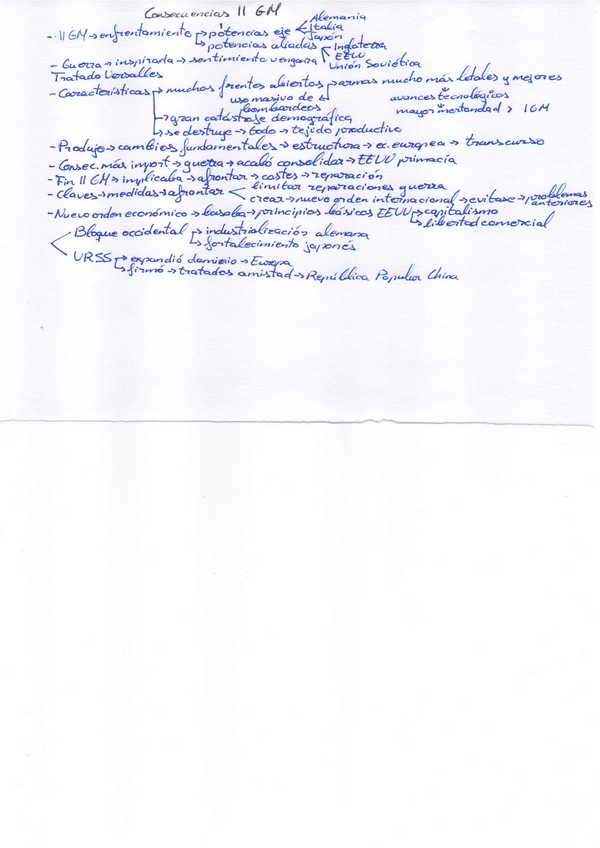 Consecuencias II GM
- II GM → enfrentamiento → potencias eje ← Alemania
Italia
Japón
potencias aliadas ← Inglaterra
EEUU
Unión Soviética
- Guerra → inspirada → sentimiento venganza
Tratado Versalles
- Características → muchos frentes abiertos → armas mucho más letales y mejores
uso masivo de bombardeos
avances tecnológicos
mayor mortandad > I GM
→ gran catástrofe demográfica
→ se destruye → todo → tejido productivo
- Produjo → cambios fundamentales → estructura → ec. europea → transcurso
- Consec. más import → guerra → acabó consolidar → EEUU primacía
- Fin II GM → implicaba → afrontar → costes → reparación
- Claves → medidas → afrontar < limitar reparaciones guerra
crear → nuevo orden internacional → evitase → problemas anteriores
- Nuevo orden económico → basaba → principios básicos EEUU → capitalismo
→ libertad comercial
Bloque occidental → industrialización alemana
→ fortalecimiento japonés
URSS → expandió dominio → Europa
→ firmó → tratados amistad → República Popular China